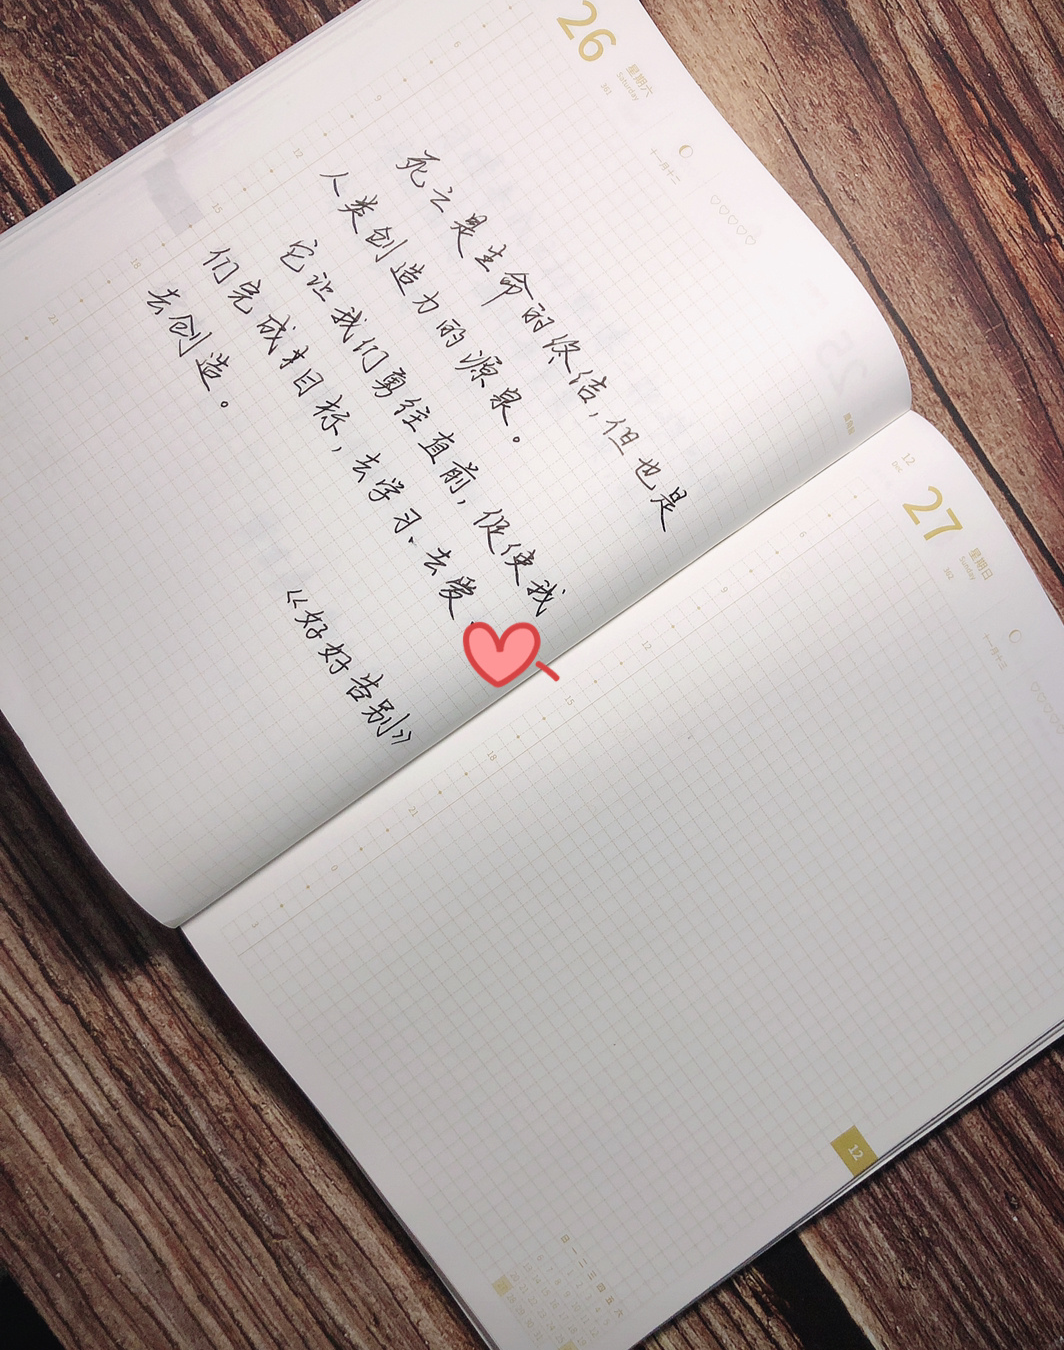 26
星期六
Saturday
361
十一月十二
6
9
12
15
18
21
死亡是生命的终结,但也是
人类创造力的源泉。
它让我们勇往直前,促使我
们完成目标,去学习、去爱、
去创造。
《好好告别》
25
12
27
星期日
Sunday
362
十一月十三
6
9
12
15
18
21
0
3
12
日 一 二 三 四 五 六